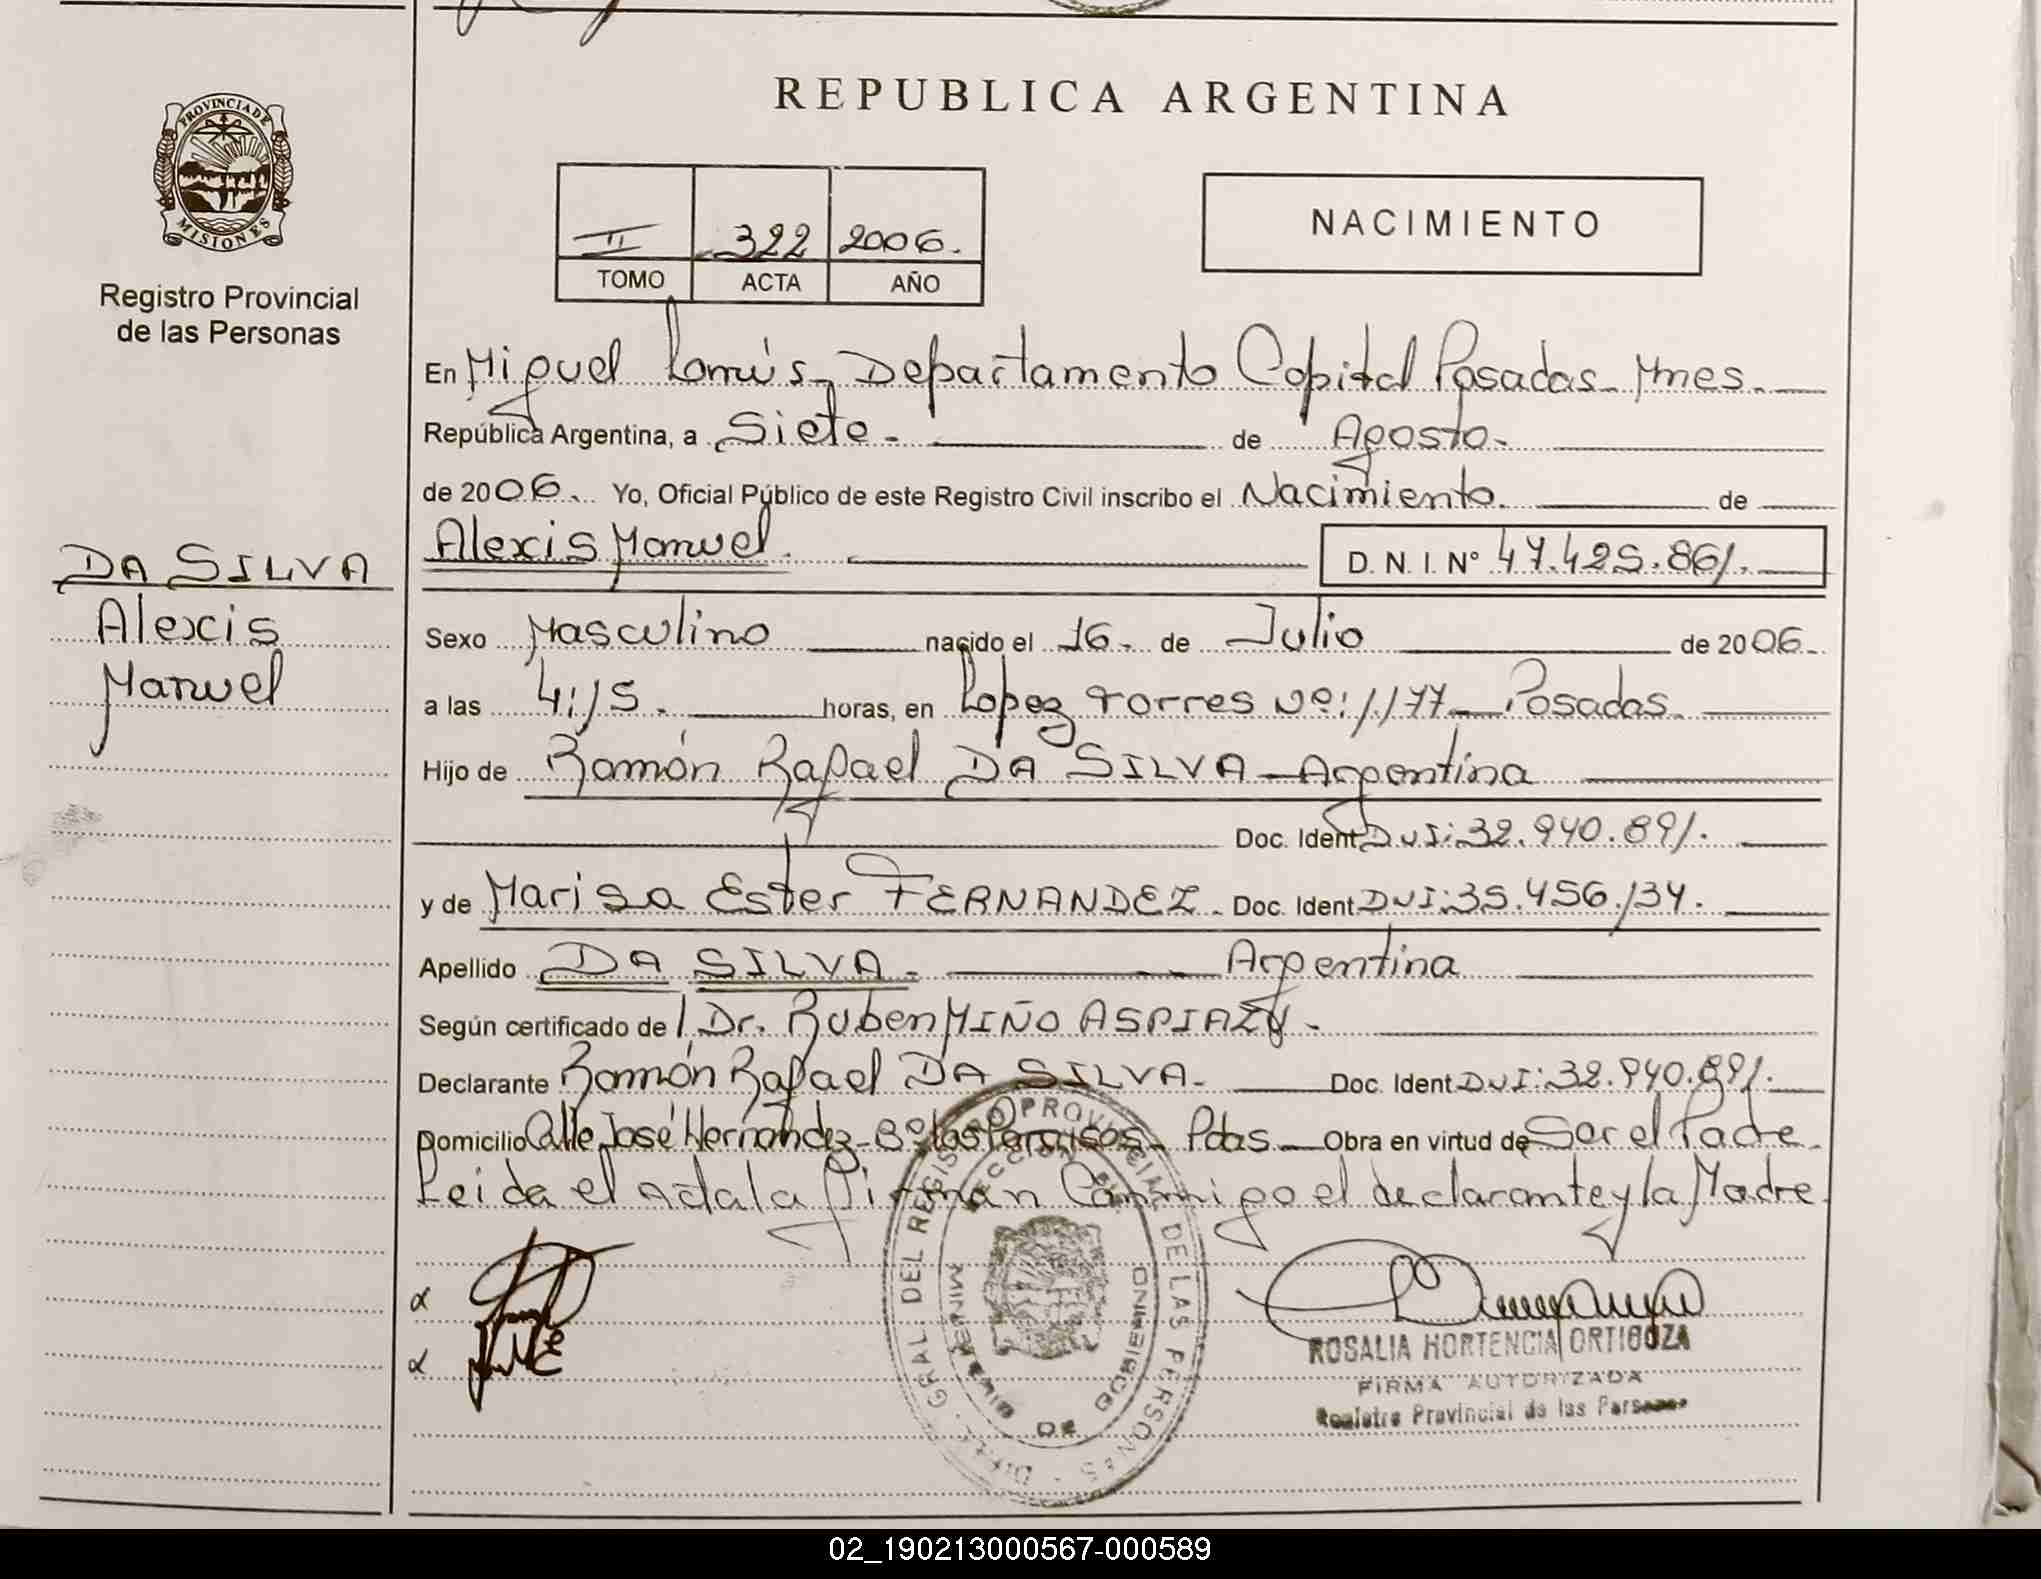 REPUBLICA ARGENTINA
PROVINCIA DE
MISIONES
Registro Provincial
de las Personas
II 322 2006.
TOMO ACTA AÑO
NACIMIENTO
En Miguel Lanús, Departamento Capital Posadas Mnes.
República Argentina, a Siete. de Agosto.
de 2006. Yo, Oficial Público de este Registro Civil inscribo el Nacimiento. de
Alexis Manuel.
D. N. I. Nº 47.425.861.
DA SILVA
Alexis
Manuel
Sexo Masculino nacido el 16. de Julio de 2006.
a las 4:15. horas, en Lopez Torres Nº: 1.177 Posadas.
Hijo de Ramón Rafael DA SILVA Argentina
Doc. Ident. DNI: 32.940.891.
y de Marisa Ester FERNANDEZ. Doc. Ident. DNI: 35.456.134.
Apellido DA SILVA. Argentina
Según certificado de Dr. Ruben MIÑO ASPIAZU.
Declarante Ramón Rafael DA SILVA. Doc. Ident. DNI: 32.940.891.
Domicilio Calle José Hernández Bº Pdas. Obra en virtud de Ser el Padre.
Leida el Acta la firman Conmigo el declarante y la Madre.
DEL REGISTRO PROVINCIAL DE LAS PERSONAS
GOBIERNO
ROSALIA HORTENCIA ORTIGOZA
FIRMA AUTORIZADA
Registro Provincial de las Personas
02_190213000567-000589